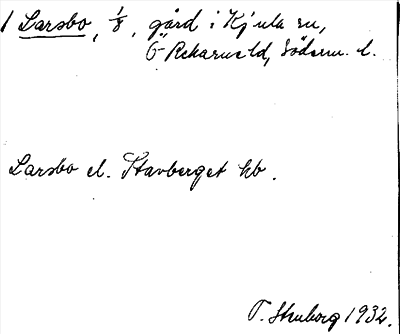 1 Larsbo, 1/8, gård i Kjula sn,
Ö Rekarne hd, Söderm. l.
Larsbo el. Stavberget hb.
T. Stenborg 1932.